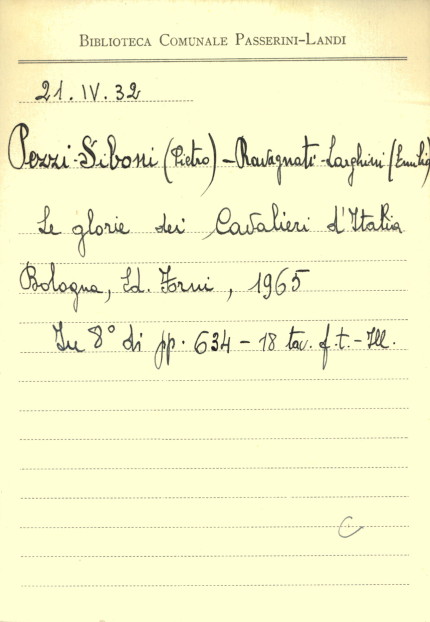 BIBLIOTECA COMUNALE PASSERINI-LANDI
21. IV. 32
Pezzi-Siboni (Pietro) - Ravagnati-Larghini (Emilio)
Le glorie dei Cavalieri d'Italia
Bologna, Ed. Forni, 1965
In 8° di pp. 634 - 18 tav. f.t. - Ill.
C